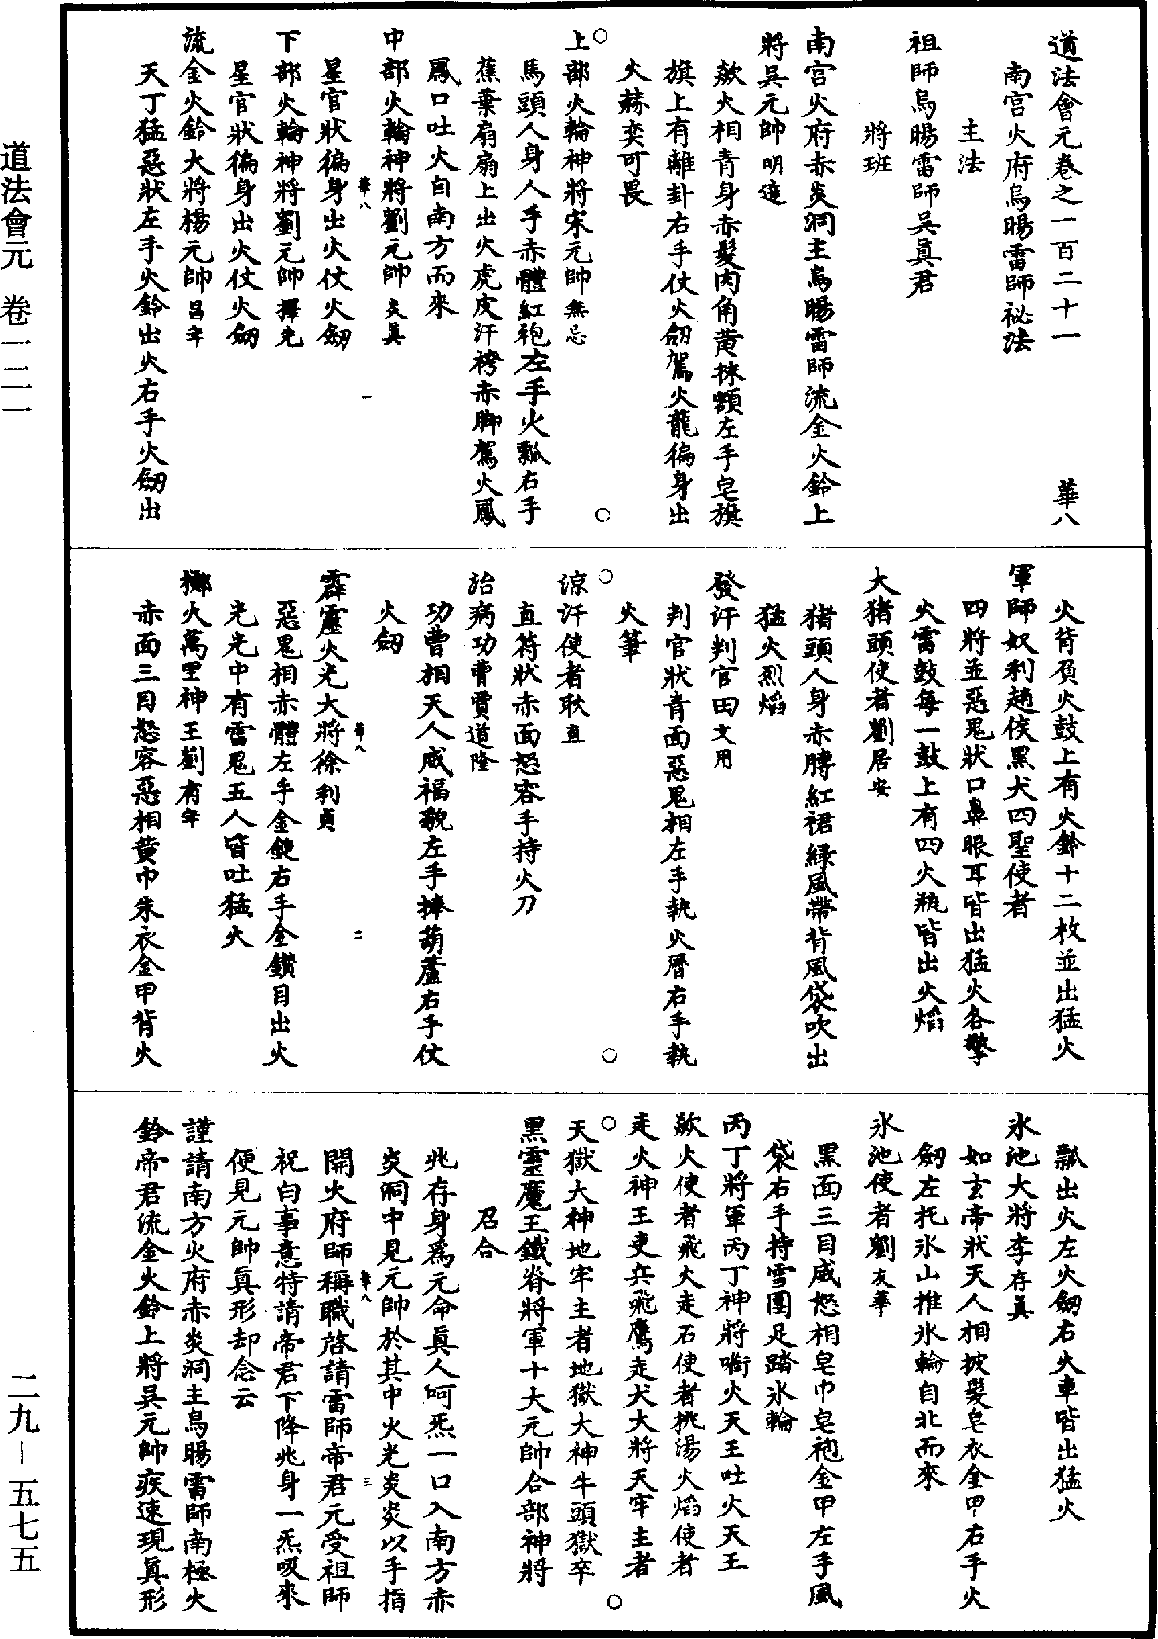 道法會元 卷一二一
二九－五七五
道法會元卷之一百二十一 華八
南宮火府烏暘雷師祕法
主法
祖師烏暘雷師吳真君
將班
南宮火府赤炎洞主烏暘雷師流金火鈴上
將吳元帥明遠
歘火相青身赤髮肉角黃抹額左手皂旗
旗上有離卦右手仗火劒駕火龍徧身出
火赫奕可畏
上部火輪神將宋元帥無忌
馬頭人身人手赤體紅袍左手火瓢右手
蕉葉扇扇上出火虎皮汗袴赤脚駕火鳳
鳳口吐火自南方而來
中部火輪神將劉元帥炎真
星官狀徧身出火仗火劒
華八 一
下部火輪神將劉元帥擇先
星官狀徧身出火仗火劒
流金火鈴大將楊元帥昌年
天丁猛惡狀左手火鈴出火右手火劒出
火背負火鼓上有火鈴十二枚並出猛火
軍師奴利趙侯黑犬四聖使者
四將並惡鬼狀口鼻眼耳皆出猛火各擎
火雷鼓每一鼓上有四火瓶皆出火焰
大猪頭使者劉居安
猪頭人身赤膊紅裙綠風帶背風袋吹出
猛火烈焰
發汗判官田文用
判官狀青面惡鬼相左手執火曆右手執
火筆
涼汗使者耿直
直符狀赤面怒容手持火刀
治病功曹賈道隆
功曹相天人威福貌左手捧葫蘆右手仗
火劒
霹靂火光大將徐利貞
華八 二
惡鬼相赤體左手金鎚右手金鑽目出火
光光中有雷鬼五人皆吐猛火
擲火萬里神王劉有年
赤面三目怒容惡相黃巾朱衣金甲背火
瓢出火左火劒右火車皆出猛火
氷池大將李存真
如玄帝狀天人相披髮皂衣金甲右手火
劒左托氷山推氷輪自北而來
氷池使者劉友華
黑面三目威怒相皂巾皂袍金甲左手風
袋右手持雪團足踏氷輪
丙丁將軍丙丁神將嘲火天王吐火天王
歘火使者飛火走石使者挑湯火焰使者
走火神王吏兵飛鷹走犬大將天牢主者
天獄大神地牢主者地獄大神牛頭獄卒
黑靈魔王鐵脊將軍十大元帥合部神將
召合
兆存身爲元命真人呵炁一口入南方赤
炎洞中見元帥於其中火光炎炎以手指
華八 三
開火府師稱職啓請雷師帝君元受祖師
祝白事意特請帝君下降兆身一炁吸來
便見元帥真形却念云
謹請南方火府赤炎洞主烏暘雷師南極火
鈴帝君流金火鈴上將吳元帥疾速現真形